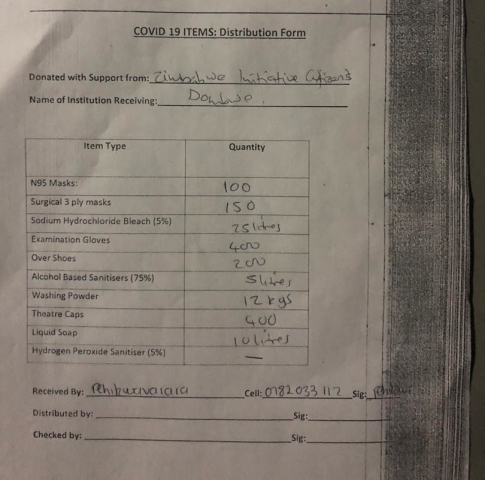 COVID 19 ITEMS: Distribution Form
Donated with Support from: Initiative
Name of Institution Receiving:
Item Type Quantity
N95 Masks: 100
Surgical 3 ply masks 150
Sodium Hydrochloride Bleach (5%) 25 litres
Examination Gloves 400
Over Shoes 200
Alcohol Based Sanitisers (75%) 5 litres
Washing Powder 12 kgs
Theatre Caps 400
Liquid Soap 10 litres
Hydrogen Peroxide Sanitiser (5%) —
Received By: Cell: 0782 033 112 Sig:
Distributed by: Sig:
Checked by: Sig: